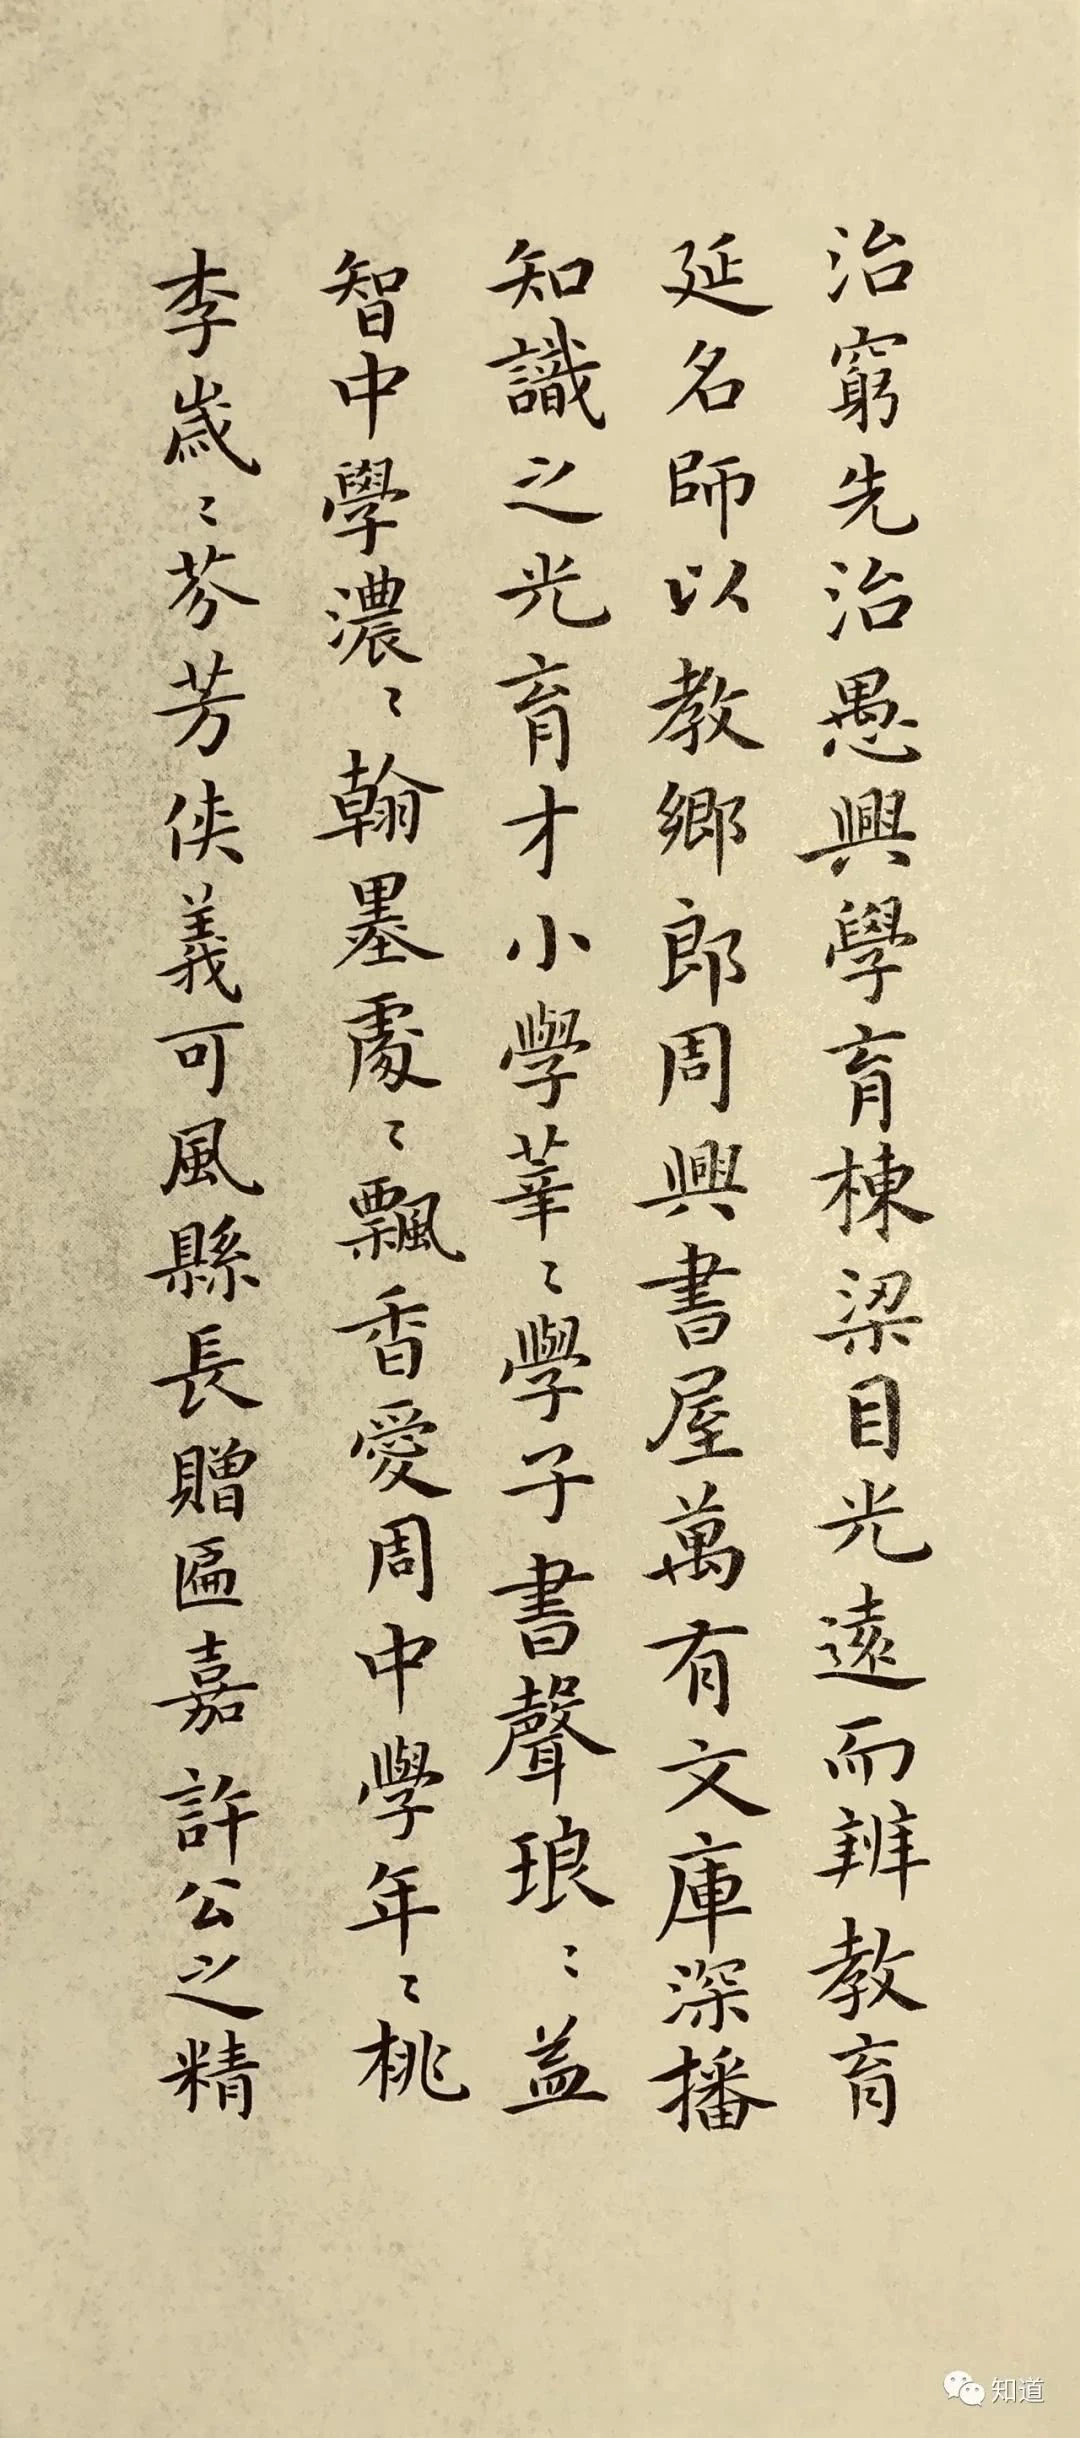 治窮先治愚興學育棟梁目光遠而辦教育
延名師以教鄉郎周興書屋萬有文庫深播
知識之光育才小學莘〻學子書聲琅〻益
智中學濃〻翰墨處〻飄香愛周中學年〻桃
李歲〻芬芳俠義可風縣長贈匾嘉許公之精
知道